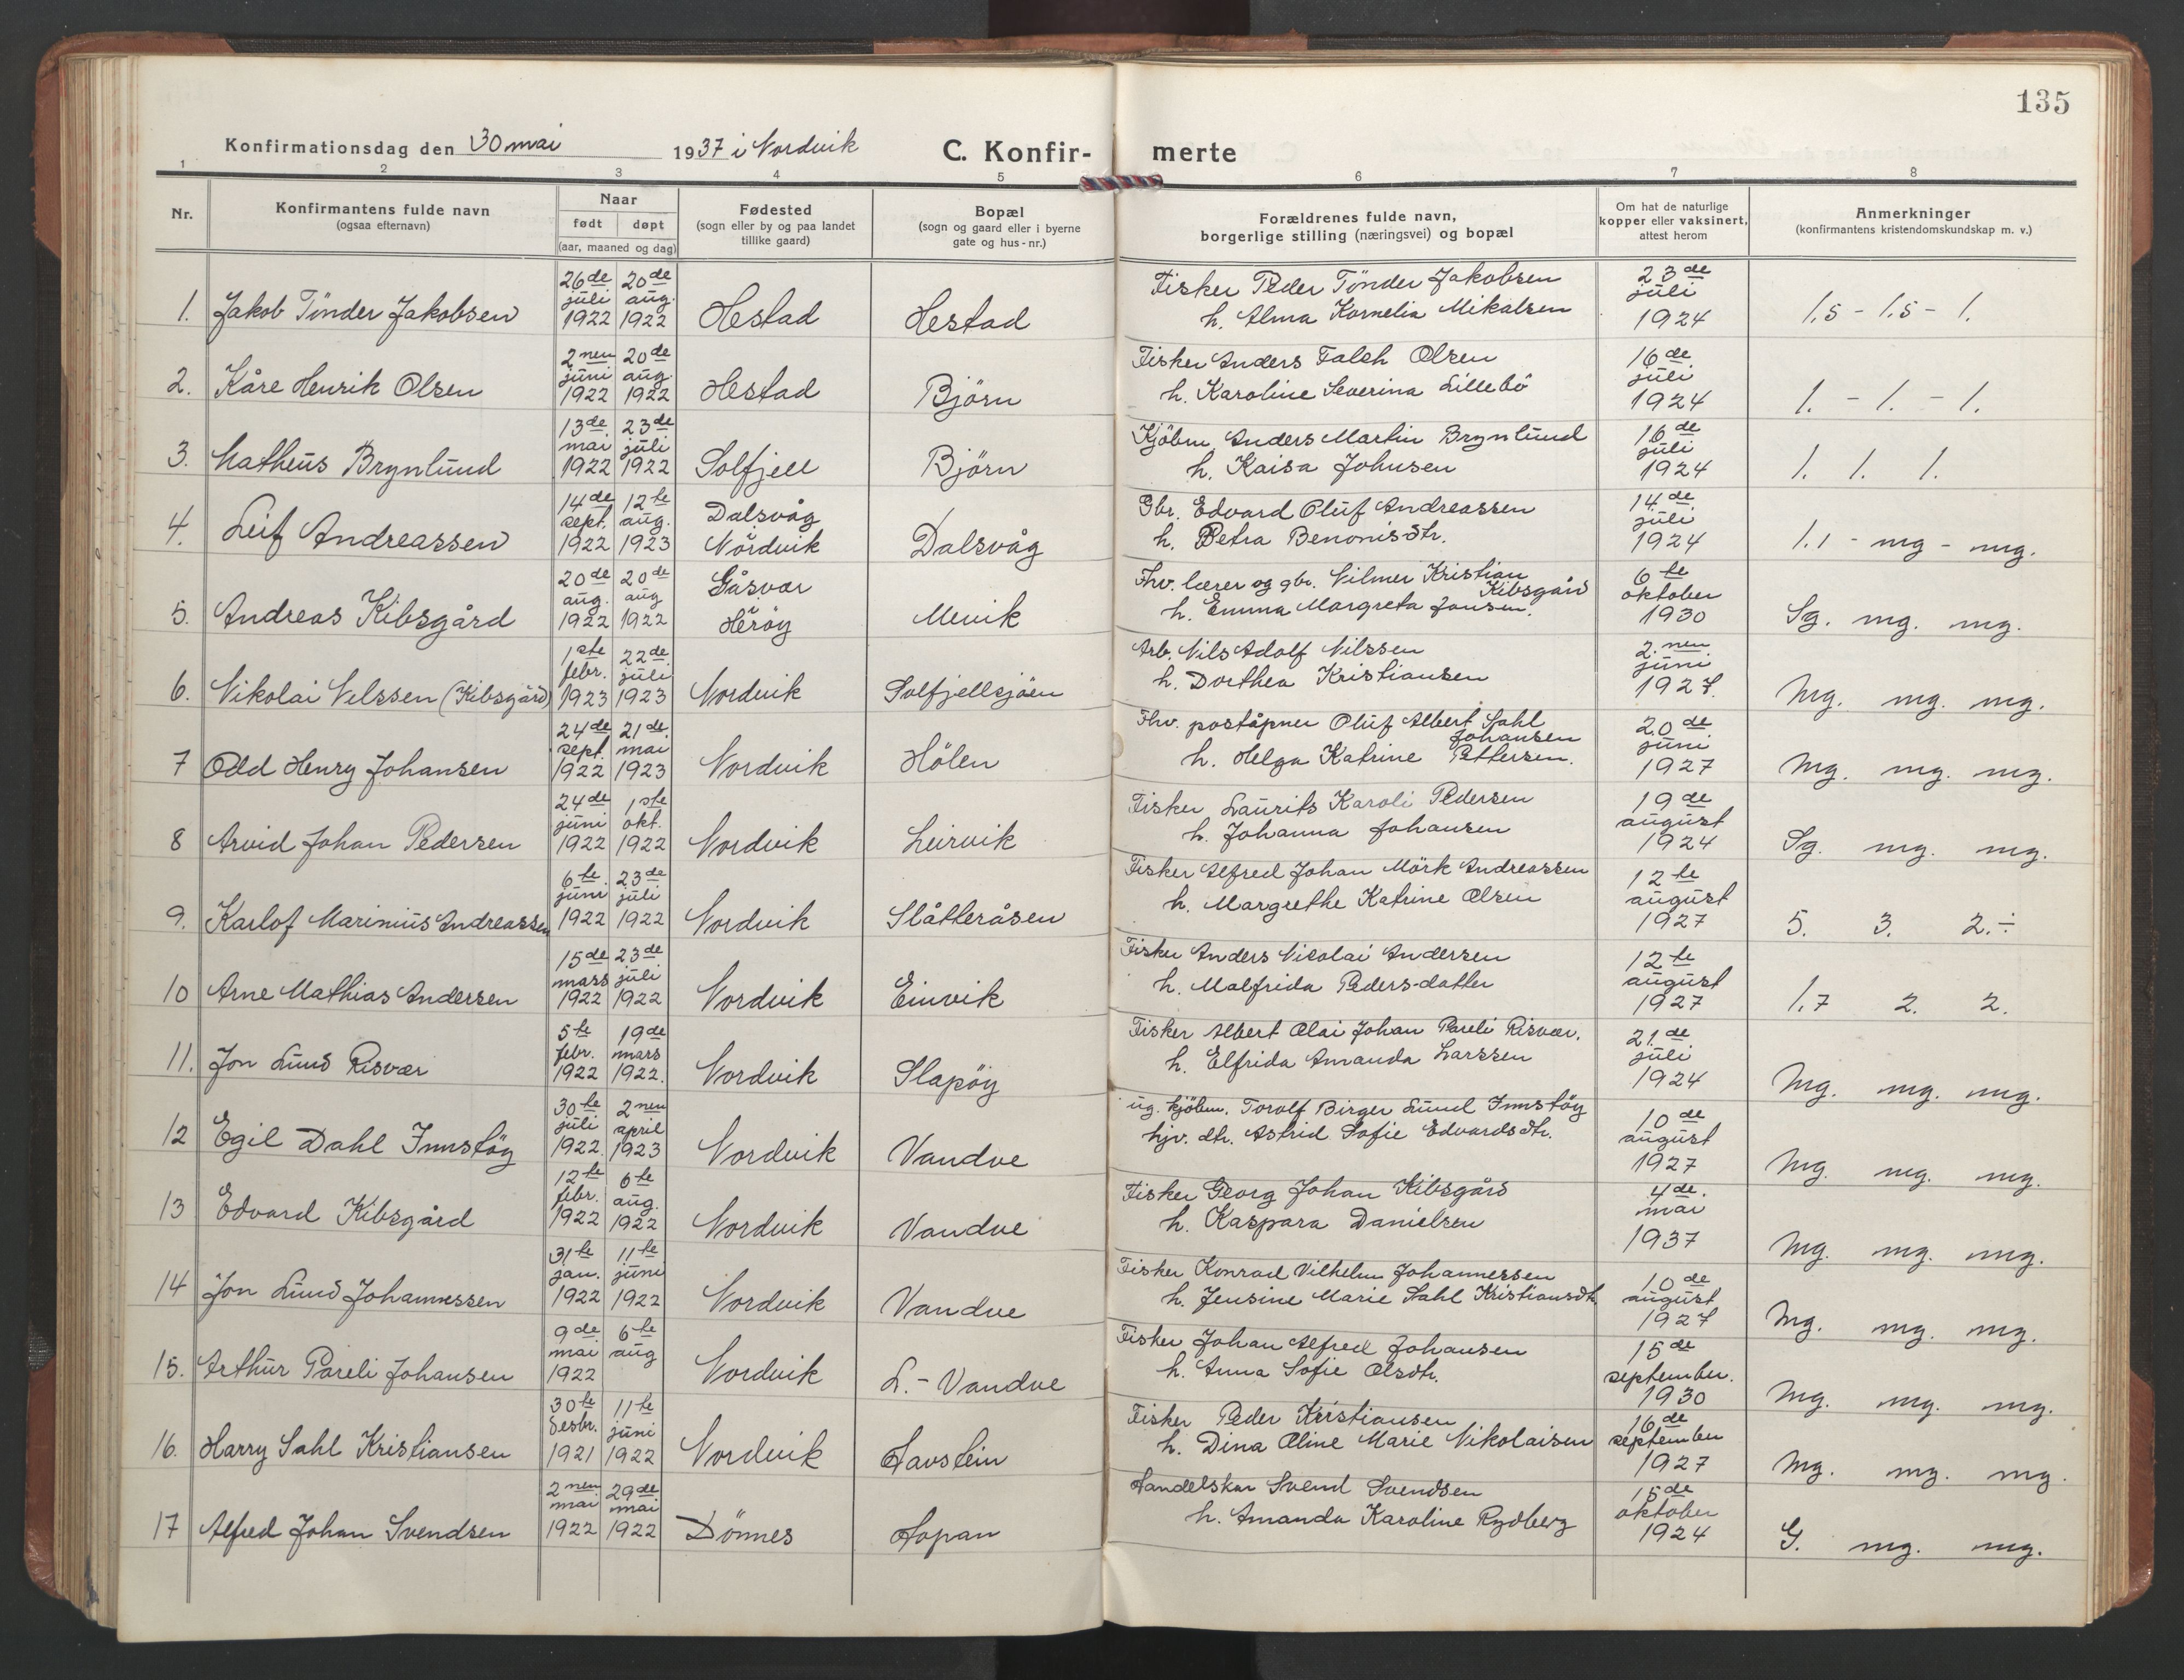 135
Konfirmationsdag den 30 mai 1937 i Nordvik
C. Konfir- merte
1 2 3 4 5 6 7 8
Nr.
Konfirmantens fulde navn
(ogsaa efternavn)
Naar
født døpt
(aar, maaned og dag)
Fødested
(sogn eller by og paa landet
tillike gaard)
Bopæl
(sogn og gaard eller i byerne
gate og hus-nr.)
Forældrenes fulde navn,
borgerlige stilling (næringsvei) og bopæl
Om hat de naturlige
kopper eller vaksinert,
attest herom
Anmerkninger
(konfirmantens kristendomskundskap m. v.)
1. Jakob Tönder Jakobsen
26de juli 1922
20de aug. 1922
Hestad
Hestad
Fisker Peder Tönder Jakobsen
h. Alma Kornelia Mikalsen
23de juli 1924
1.5 - 1.5 - 1.
2. Kåre Henrik Olsen
2nen juni 1922
20de aug. 1922
Hestad
Björn
Fisker Anders Falch Olsen
h. Karoline Severina Lillebö
16de juli 1924
1. - 1. - 1.
3. Matheus Brynlund
13de mai 1922
23de juli 1922
Solfjell
Björn
Kjöbm. Anders Martin Brynlund
h. Kaisa Johnsen
16de juli 1924
1. 1. 1.
4. Leif Andreassen
14de sept. 1922
12te aug. 1923
Dalsvåg
Nordvik
Dalsvåg
Gbr. Edvard Oluf Andreassen
h. Petra Benonisdtr.
14de juli 1924
1.1 - mg - mg.
5. Andreas Kibsgård
20de aug. 1922
20de aug 1922
Gåsvær
Heröy
Mevik
Fhv. lærer og gbr. Vilmer Kristian
Kibsgård
h. Emma Margreta Jansen.
6te oktober 1930
Sg. mg. mg.
6. Nikolai Nilssen (Kibsgård)
1ste febr. 1923
22de juli 1923
Nordvik
Solfjellsjöen
Arb. Nils Adolf Nilssen
h. Dorthea Kristiansen
2.nen juni 1927.
Mg. mg. mg.
7 Odd Henry Johansen
24de sept. 1922
21de mai 1923
Nordvik
Hölen
Fhv. poståpner Oluf Albert Sahl
Johansen
h. Helga Katrine Pettersen.
20de juni 1927
Mg. mg. mg.
8 Arvid Johan Pedersen
24de juni 1922
1ste okt. 1922
Nordvik
Leirvik
Fisker Laurits Karoli Pedersen
h. Johanna Johansen
19de august 1924
Sg. mg. mg.
9. Karlof Marinius Andreassen
6te juni 1922
23de juli 1922
Nordvik
Slåtteråsen
Fisker Alfred Johan Mörk Andreassen
h. Margrethe Katrine Olsen
12te august 1927
5. 3. 2.÷
10 Arne Mathias Andersen
15de mars 1922
23de juli 1922
Nordvik
Einvik
Fisker Anders Nicolai Andersen
h. Malfrida Peders-datter
12te august 1927
1.7 2. 2.
11. Jon Lund Risvær
5te febr. 1922
19de mars 1922.
Nordvik
Slapöy
Fisker Albert Olai Johan Pareli Risvær.
h. Elfrida Amanda Larssen
21.de juli 1924
Mg. mg. mg.
12 Egil Dahl Innstöy
30te juli 1922.
2nen april 1923
Nordvik
Vandve
ug. kjöbm. Torolf Birger Lund Innstöy
hjv. dtr. Astrid Sofie Edvardsdtr.
10de august 1927
Mg. mg. mg.
13 Edvard Kibsgård
12te febr. 1922
6te aug. 1922
Nordvik
Vandve
Fisker Georg Johan Kibsgård
h. Kaspara Danielsen
4de. mai 1937
Mg. mg. mg.
14 Jon Lund Johannessen
31te jan. 1922
11te juni 1922
Nordvik
Vandve
Fisker Konrad Vilhelm Johannessen
h. Jensine Marie Sahl Kristiansdtr
10de august 1927
Mg. mg. mg.
15. Arthur Pareli Johansen
9de mai 1922
6te aug
Nordvik
L.-Vandve
Fisker Johan Alfred Johansen
h. Anna Sofie Olsdtr.
15de september. 1930
Mg. mg. mg.
16. Harry Sahl Kristiansen
30te desbr. 1921
11te juni 1922
Nordvik
Havstein
Fisker Peder Kristiansen
h. Dina Oline Marie Nikolaisen
16de september 1927
Mg. mg. mg.
17 Alfred Johan Svendsen
2nen mai 1922
29de mai 1922
Dönnes
Hopan
Handelskar Svend Svendsen
h. Amanda Karoline Rydberg
15de oktober 1924
G. mg. mg.